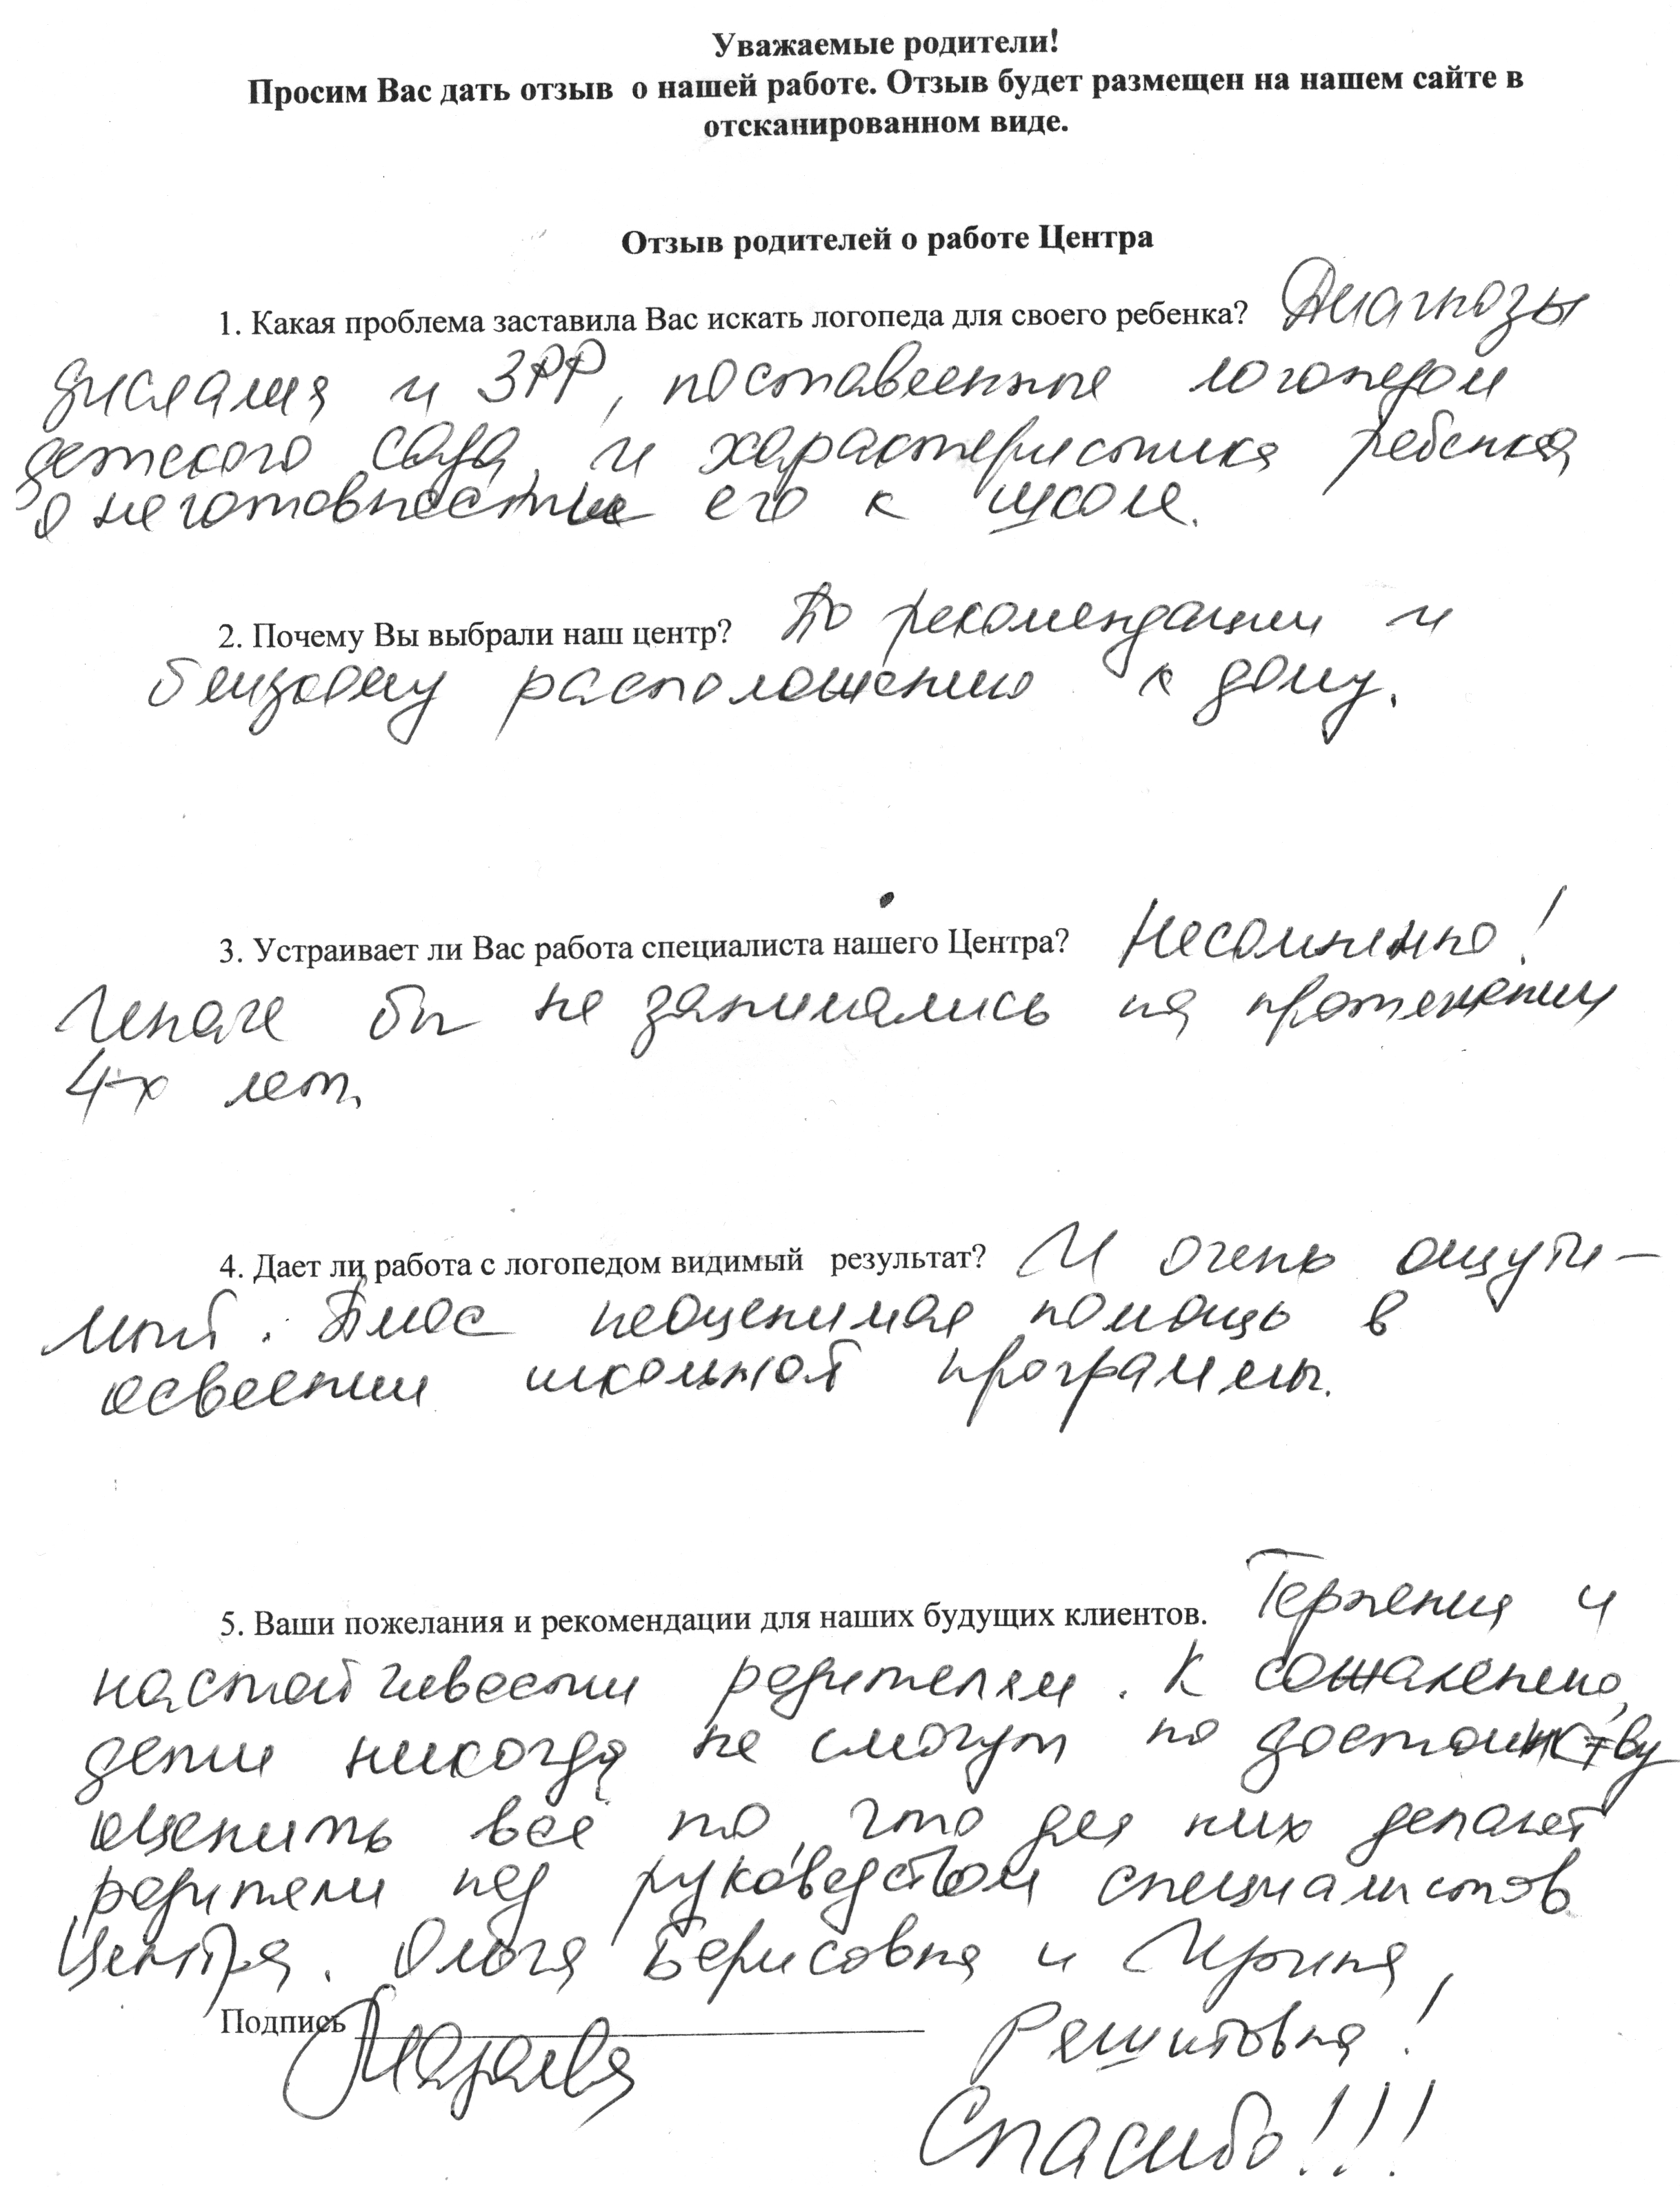 Уважаемые родители!
Просим Вас дать отзыв о нашей работе. Отзыв будет размещен на нашем сайте в
отсканированном виде.
Отзыв родителей о работе Центра
1. Какая проблема заставила Вас искать логопеда для своего ребенка? Диагнозы
дислалия и ЗРР, поставленные логопедом
детского сада, и характеристика ребенка
о неготовности его к школе.
2. Почему Вы выбрали наш центр? По рекомендации и
близкому расположению к дому.
3. Устраивает ли Вас работа специалиста нашего Центра? Несомненно!
Иначе бы не занимались на протяжении
4-х лет.
4. Дает ли работа с логопедом видимый результат? И очень ощути-
мый. Плюс неоценимая помощь в
освоении школьной программы.
5. Ваши пожелания и рекомендации для наших будущих клиентов. Терпения и
настойчивости родителям. К сожалению,
дети никогда не смогут по достоинству
оценить всё то, что для них делают
родители под руководством специалистов
Центра. Ольга Борисовна и Ирина
Подпись Рашитовна!
Спасибо!!!